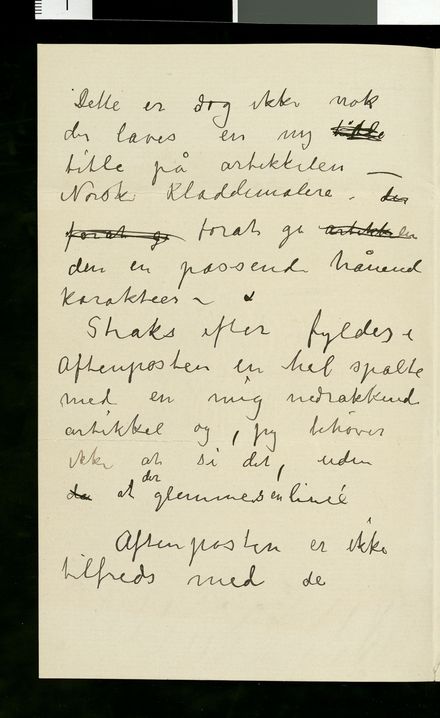 Dette er dog ikke nok
der laves en ny title
title på artikkelen —
Norsk Kladdemalere. der
forat gi forat gi artikkelen
den en passende hånend
karakteer ~
Straks efter fyldes i
Aftenposten en hel spalte
med en mig nedrakkende
artikkel og, jeg behøver
ikke at si det, uden
da at der glemmes en linie
Aftenposten er ikke
tilfreds med de